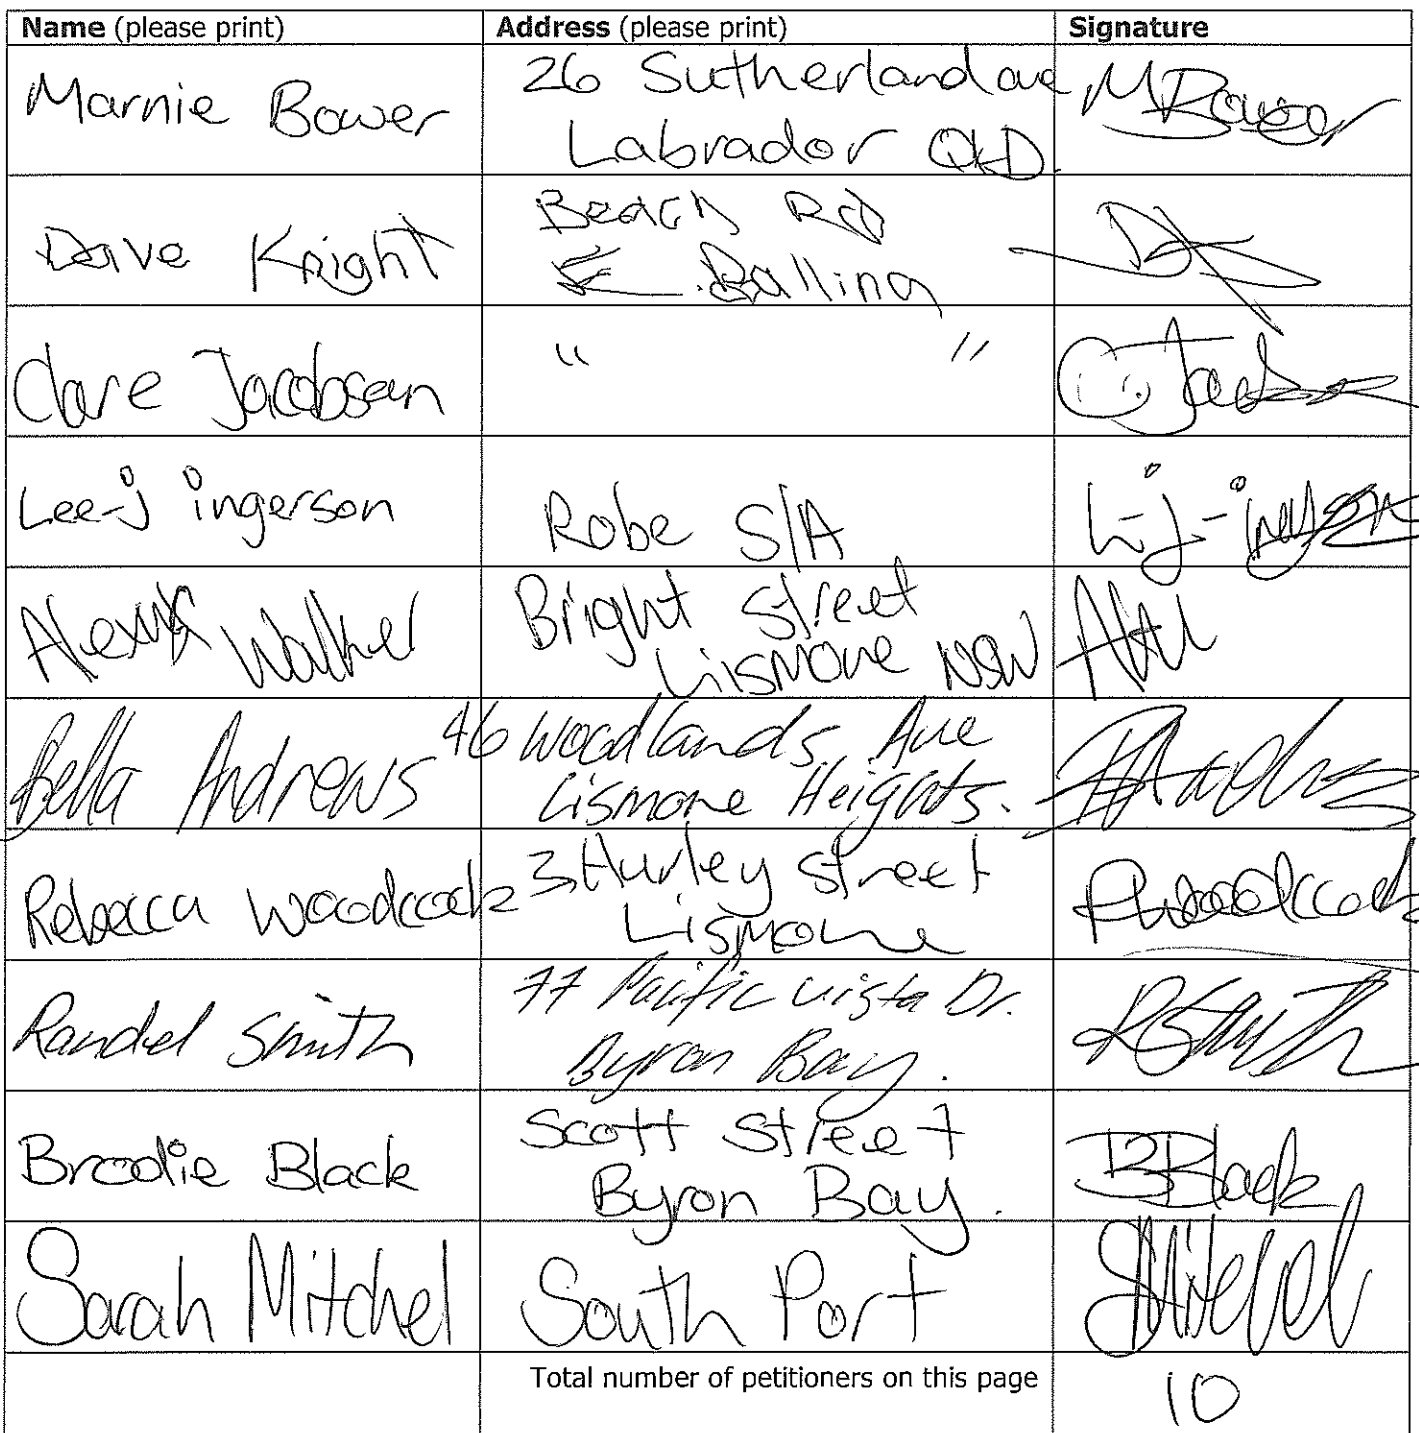 Name (please print) Address (please print) Signature
Marnie Bower 26 Sutherland ave M Bower
Labrador QLD.
Dave Knight Beach Rd
E Ballina
Clare Jacobsen " "
Lee-j ingerson Robe S/A L-j-ingerson
Walker Bright Street
Lismore NSW
Bella Andrews 46 Woodlands Ave
Lismore Heights.
Rebecca Woodcock 3 Hurley Street RWoodcock
Lismore
Randel Smith 77 Pacific vista Dr. RSmith
Byron Bay.
Brodie Black Scott Street BBlack
Byron Bay.
Sarah Mitchel South Port SMitchel
Total number of petitioners on this page 10